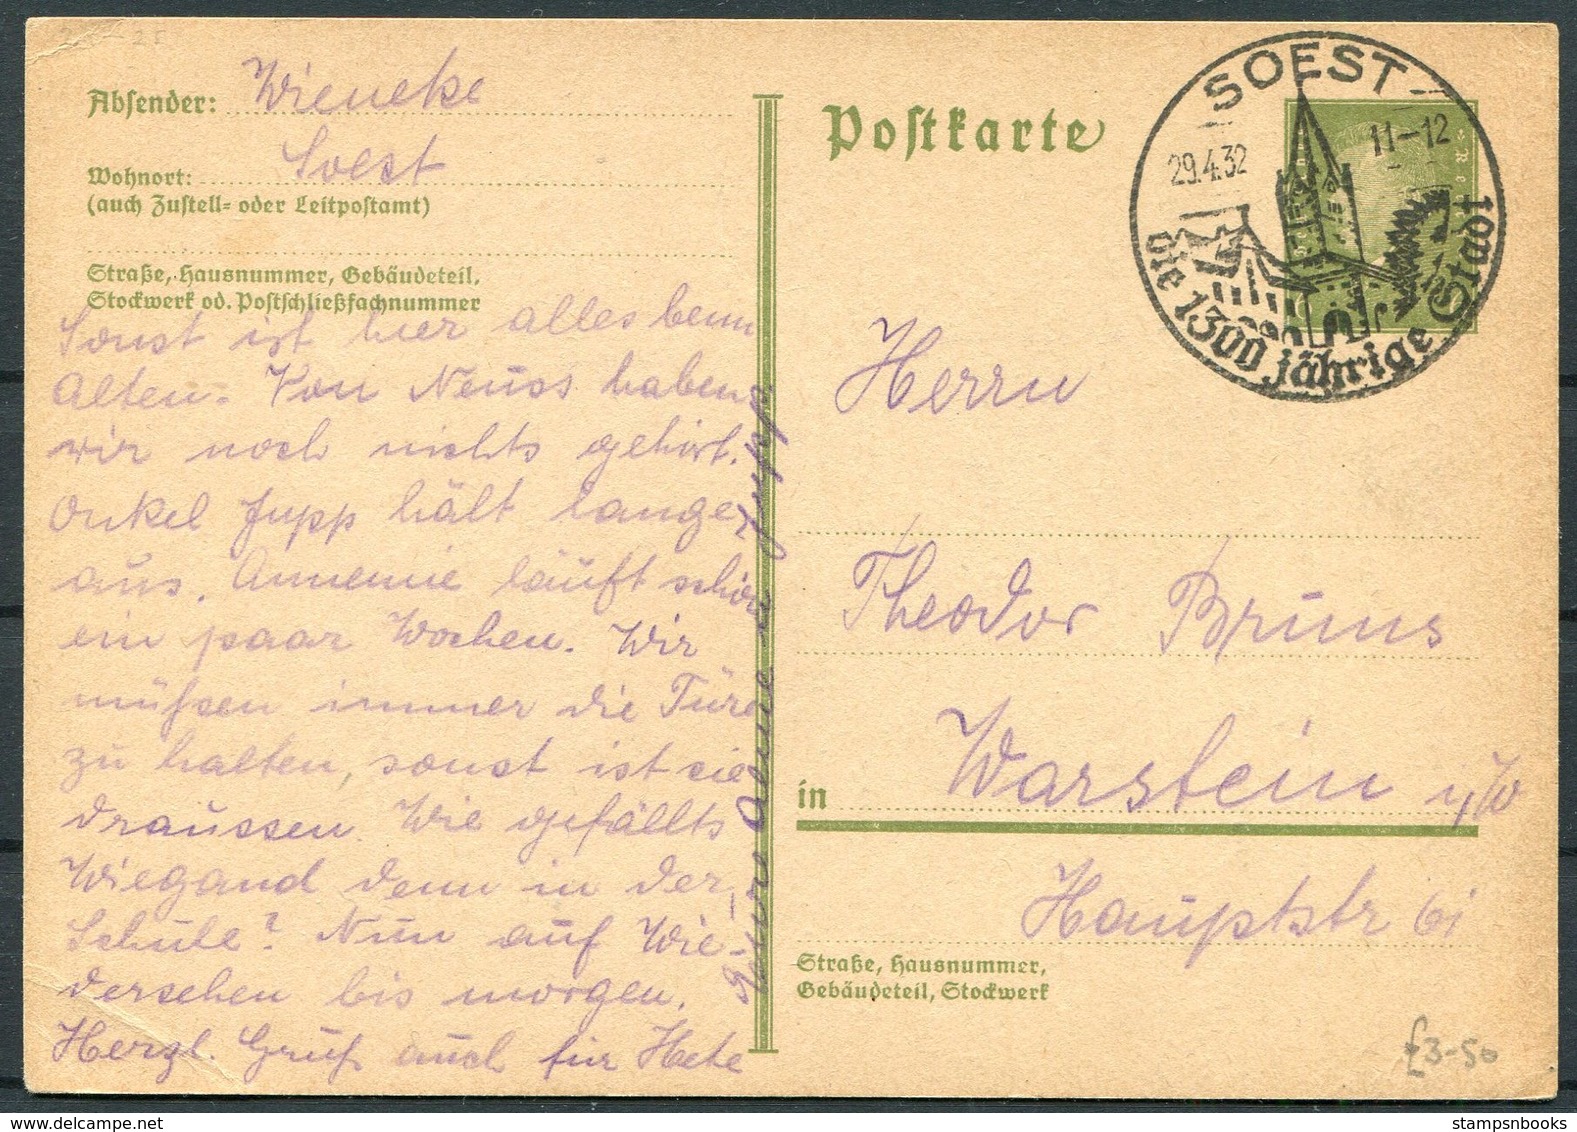 Absender: Wieneke
Wohnort: Soest
(auch Zustell- oder Leitpostamt)
Straße, Hausnummer, Gebäudeteil,
Stockwerk od. Postschließfachnummer
Sonst ist hier alles beim
Alten. Von Neuss haben
wir noch nichts gehört.
Onkel Jupp hält lange
aus. Annemie läuft schon
ein paar Wochen. Wir
müssen immer die Türe
zu halten, sonst ist sie
draussen. Wie gefällts
Wiegand denn in der
Schule? Nun auf Wie-
dersehen bis morgen.
Herzl. Gruß auch für Hete
Eure Änne u Jupp.
Postkarte
SOEST
29.4.32
11-12
die 1300 jährige Stadt
Herrn
Theodor Bruns
in Warstein i/W
Hauptstr 61
Straße, Hausnummer,
Gebäudeteil, Stockwerk
£3-50
stampsnbooks